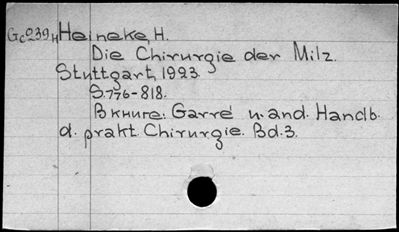 Gc039H Heineke, H.
Die Chirurgie der Milz.
Stuttgart, 1923.
S. 776-818.
В книге: Garré u. and. Handb.
d. prakt. Chirurgie. Bd. 3.